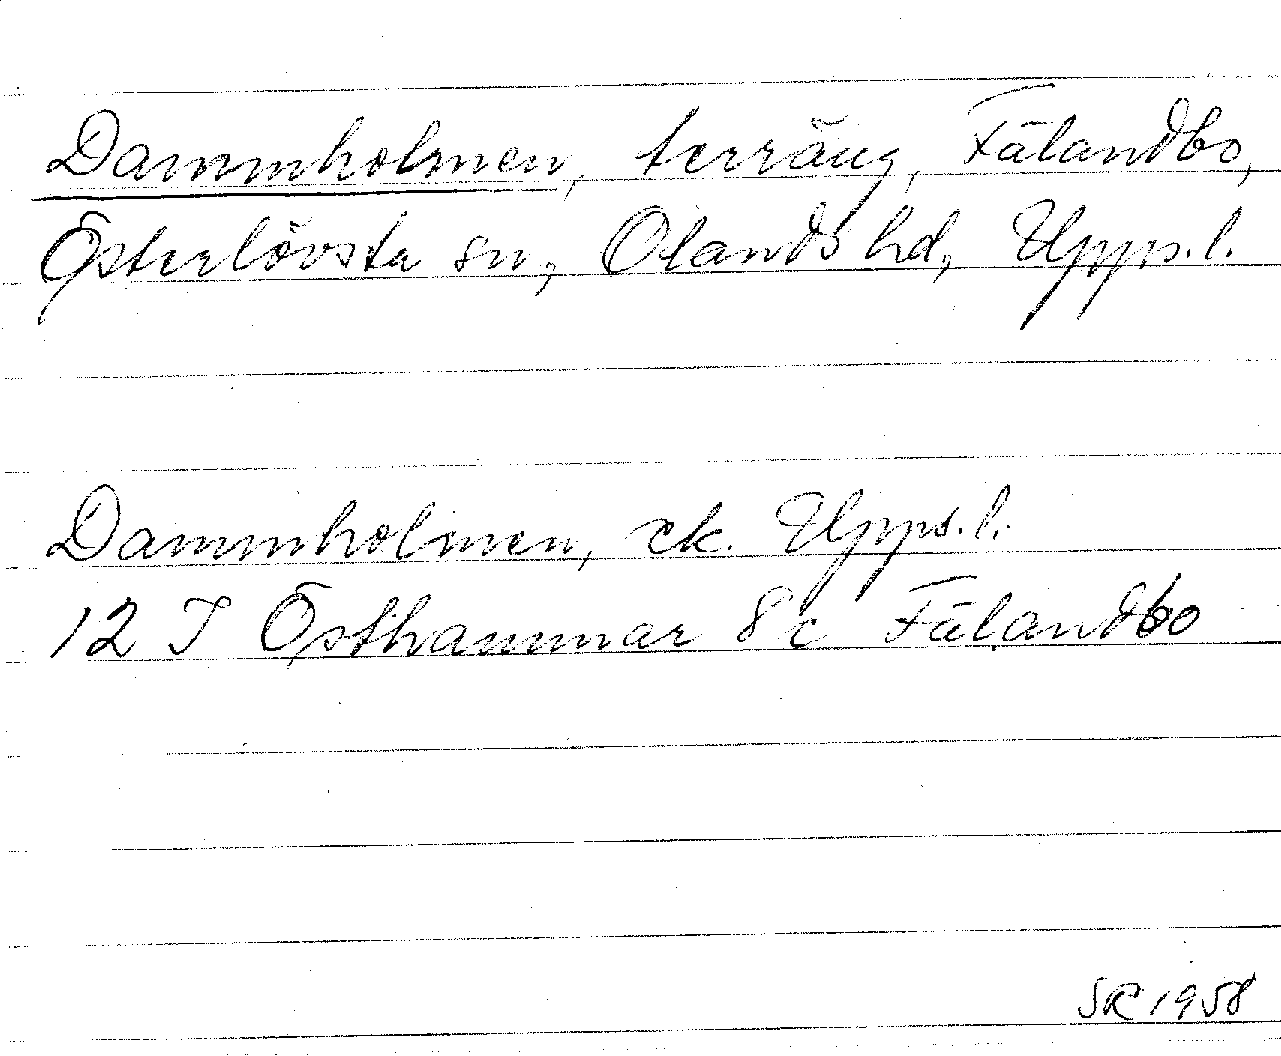 Dammholmen, terräng, Fälandbo,
Österlövsta sn, Olands hd, Upps.l.
Dammholmen, ek. Upps.l.
12 I Östhammar 8c Fälandbo
SR 1958